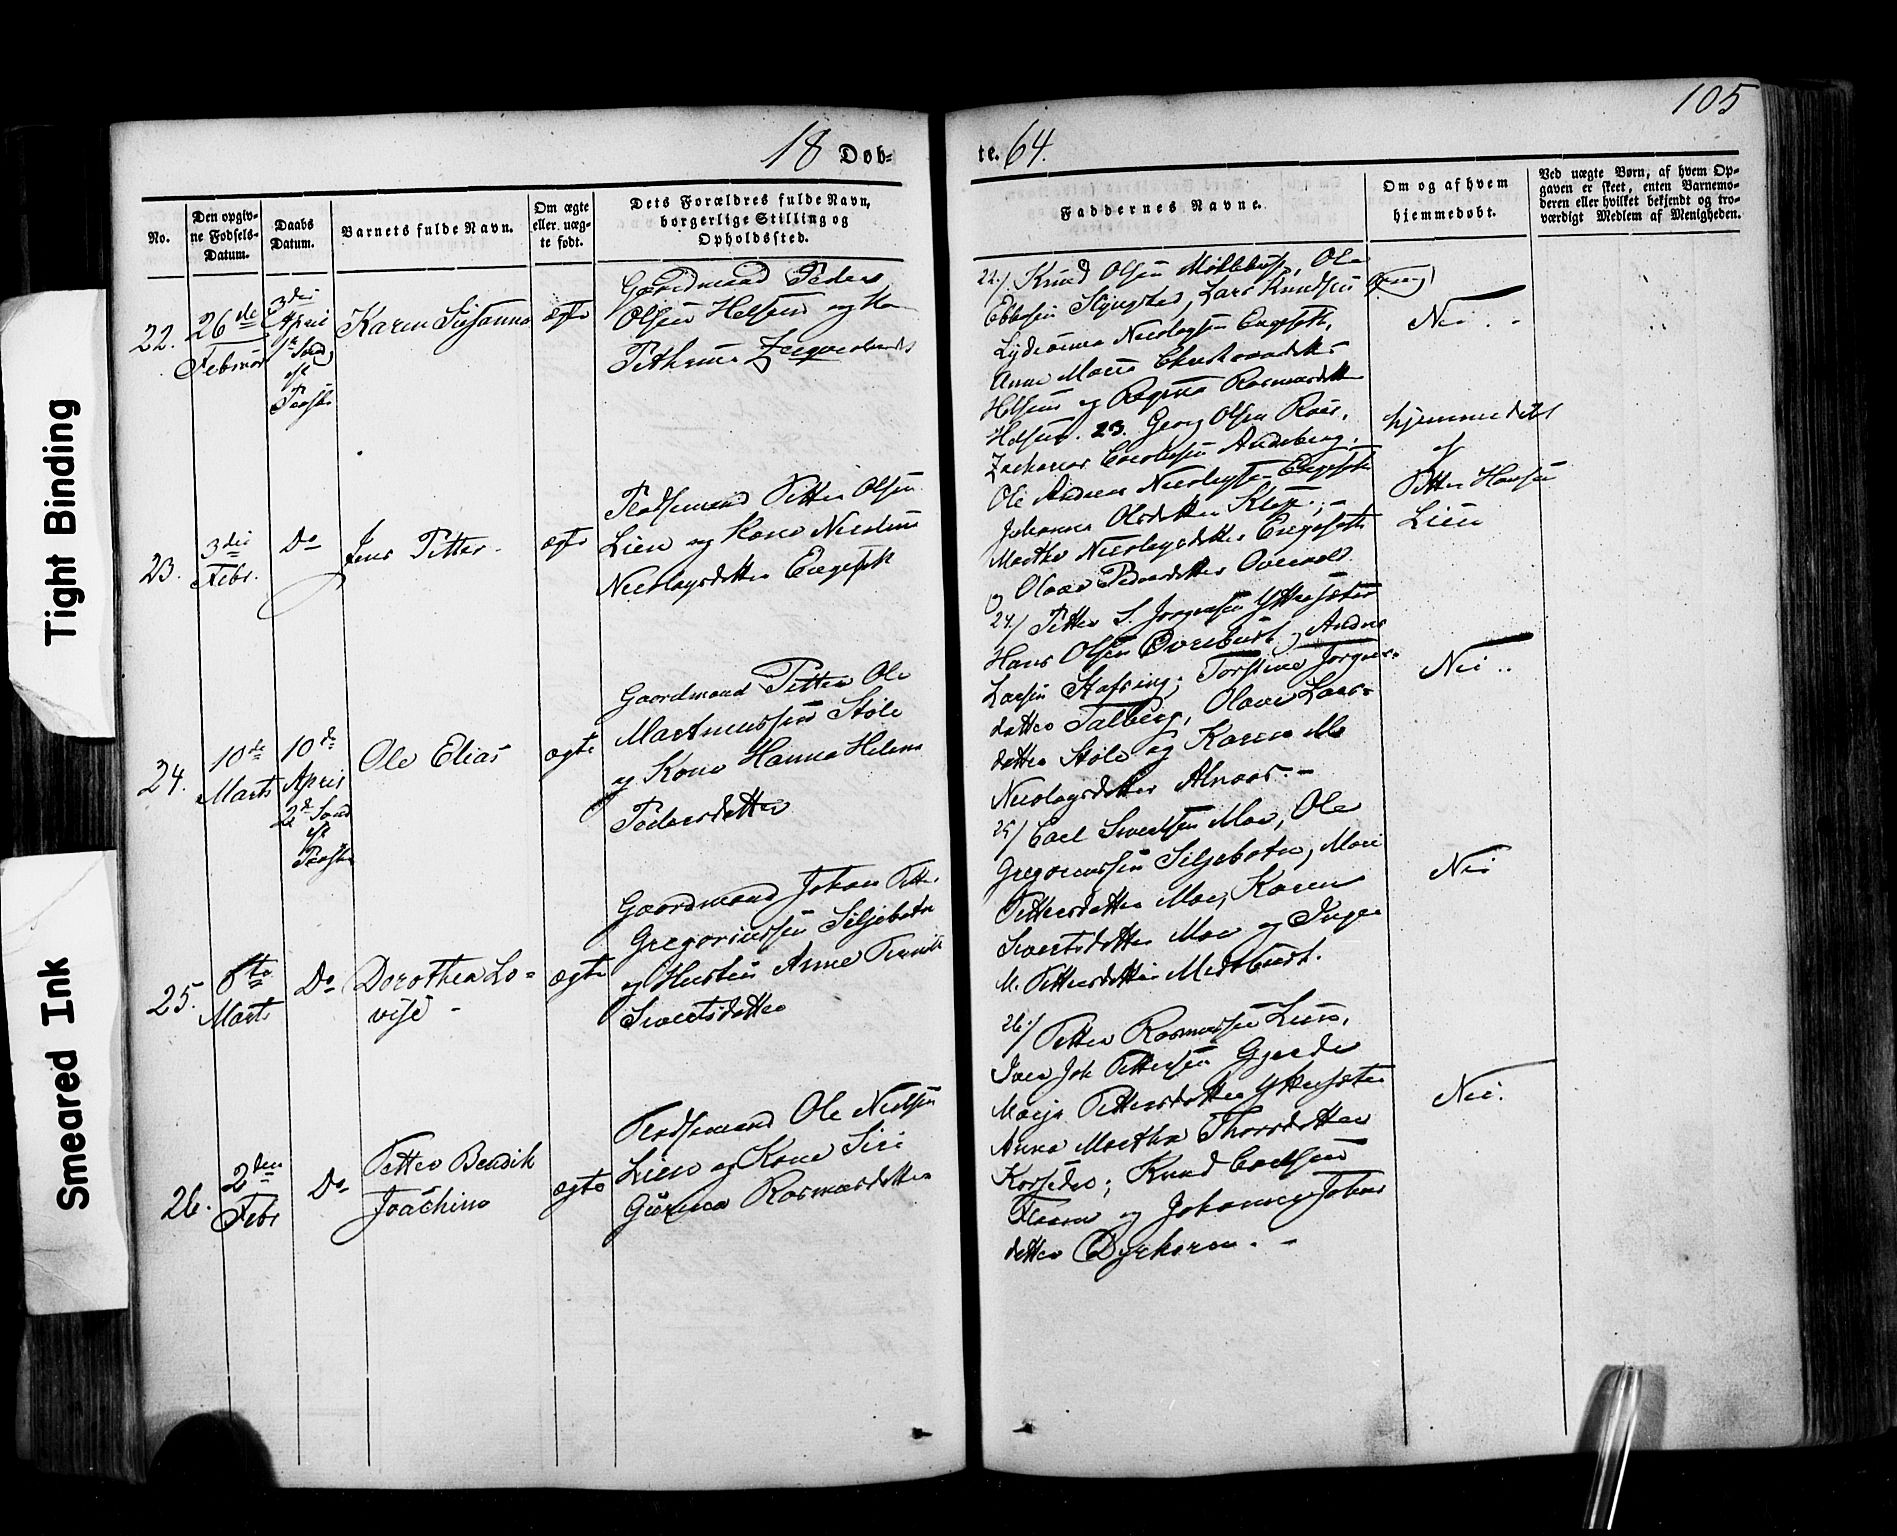 105
18 Døb-
te. 64.
No.
Den opgiv-
ne Fødsels-
Datum.
Daabs
Datum.
Barnets fulde Navn.
Om ægte
eller uæg-
te født.
Dets Forældres fulde Navn,
borgerlige Stilling og
Opholdssted.
Faddernes Navne.
Om og af hvem
hjemmedøbt.
Ved uægte Børn, af hvem Op-
gaven er skeet, enten Barnemo-
deren eller hvilket bekjendt og tro-
værdigt Medlem af Menigheden.
22.
26de
Februar
3die
April
1ste Sond
eft
Paaske
Karen Susanna
ægte
Gaardmand Peder
Olsen Helsem og Ko
22/ Knud Olsen Ole
Ebbesen Lars Knudsen
Nicolaysen Engeset,
Anne Marie
Helsem og Regina Rasmusdtr
Helsem.
Nei.
23.
3die
Febr.
Do
Jens Petter.
ægte
Pladsemand Petter Olsen
Lien og Kone Nicoline
Nicolaysdatter Engeset
23. Georg Olsen
Zacharias
Ole Andreas Nicolaysen Engeset
Johanna Olsdatter
Marthe Nicolaysdatter Engeset
og Olave Pedersdatter
hjemmedøbt
af
Petter Hansen
Lien
24.
10de
Marts
10de
April
2de Sond
eft
Paaske
Ole Elias
ægte
Gaardmand Petter Ole
Martinussen Støle
og Kone Hanna Helene
Pedersdatter
24/ Petter S. Jørgensen Yttresæter
Hans Olsen og Andr
Larsen Torstine Jørgens-
datter Talberg, Olave Lars-
datter Støle og Karen M
Nicolaysdatter Alnaas.-
Nei..
25.
8de
Marts
Do
Dorothea Lo-
vise -
ægte
Gaardmand Johan Pett.
Gregoriussen Siljebotn
og Hustru Anne
Sivertsdatter
25/ Carl Sivertsen Moe, Ole
Gregoriussen Siljebotn, Mari
Pettersdatter Moe, Karen
Sivertsdatter Moe og Inger
M. Pettersdatter
Nei
26.
2den
Febr
Do
Petter Bendik
Joachim
ægte
Pladsemand Ole Nielsen
Lien og Kone Siri
Rasmusdatter
26/ Petter Rasmussen Lien,
Iver Joh Pettersen Gjerde
Pettersdatter Yttresæter
Anna Martha Thorsdatter
Knud Carlsen
og Johanne Johans
datter Dyrkorn. -
Nei.
Tight Binding
Smeared Ink